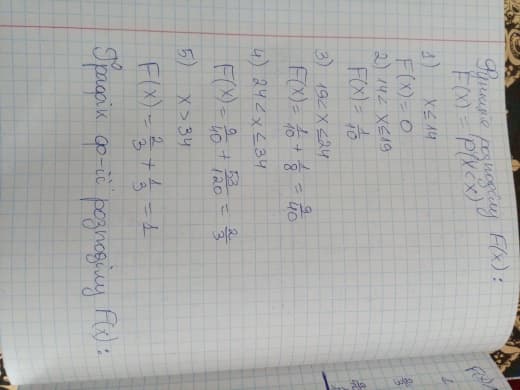 Функція розподілу F(x):
F(x) = P(X<x)
1) x≤14
F(x)= 0
2) 14< x≤19
F(x)= 1/10
3) 19< x≤24
F(x)= 1/10 + 1/8 = 9/40
4) 24< x ≤ 34
F(x)= 9/40 + 53/120 = 2/3
5) x > 34
F(x)= 2/3 + 1/3 = 1
Графік ф-ії розподілу F(x):